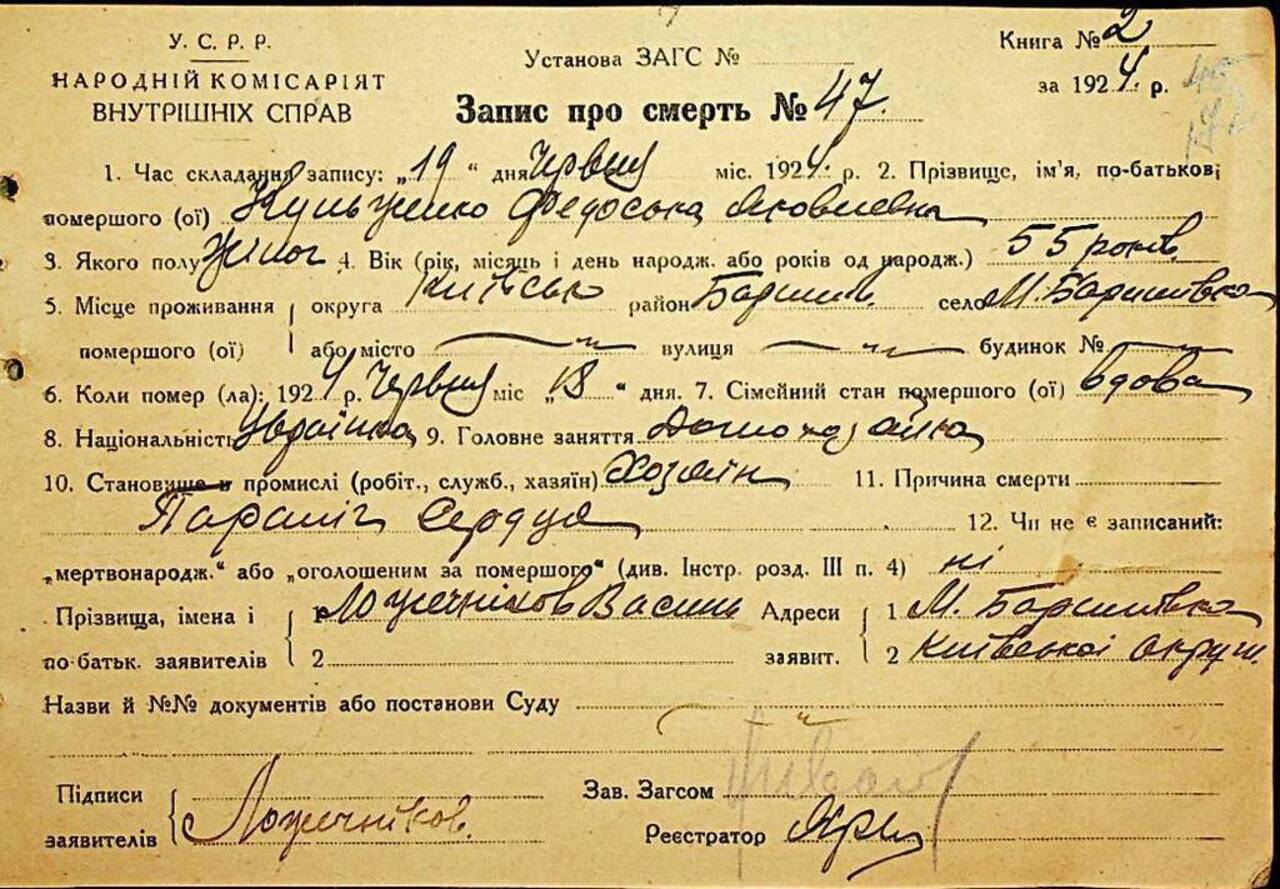 У. С. Р. Р.
НАРОДНІЙ КОМІСАРІЯТ
ВНУТРІШНІХ СПРАВ
Установа ЗАГС №
Запис про смерть № 47.
Книга № 2
за 1924 р.
1. Час складання запису: „19 “ дня Червня міс. 1924. р. 2. Прізвище, ім'я, по-батькові
помершого (ої) Федоська Яковлевна
3. Якого полу Жіноч 4. Вік (рік, місяць і день народж. або років од народж.) 55 років.
5. Місце проживання округа Київсько район Баришів. село М. Баришівка
помершого (ої) або місто — „ — вулиця — „ — будинок № —
6. Коли помер (ла): 1924 р. Червня міс „18 “ дня. 7. Сімейний стан помершого (ої) вдова
8. Національність Українка 9. Головне заняття Домохазяйка
10. Становище в промислі (робіт., служб., хазяїн) Хозяїн 11. Причина смерти
Параліч Сердца 12. Чи не є записаний:
„мертвонародж.“ або „оголошеним за помершого“ (див. Інстр. розд. III п. 4) ні
Прізвища, імена і 1 Ложечніков Василь Адреси 1 М. Баришівка
по-батьк. заявителів 2 заявит. 2 Київської округи.
Назви й №№ документів або постанови Суду
— „ —
Підписи Зав. Загсом
заявителів Ложечніков. Реєстратор